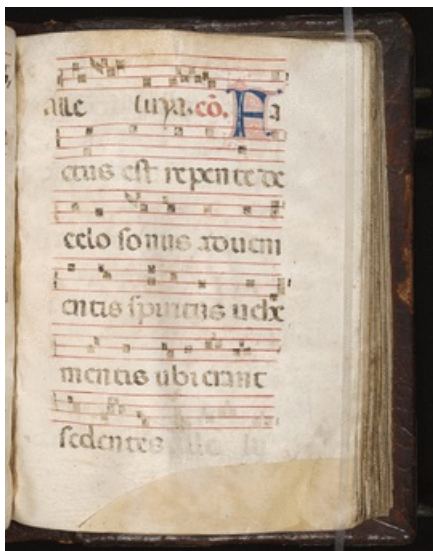 alle luya. cō. Fa
ctus est repente de
celo sonus adueni
entis spiritus uehe
mentis ubi erant
sedentes alle lu